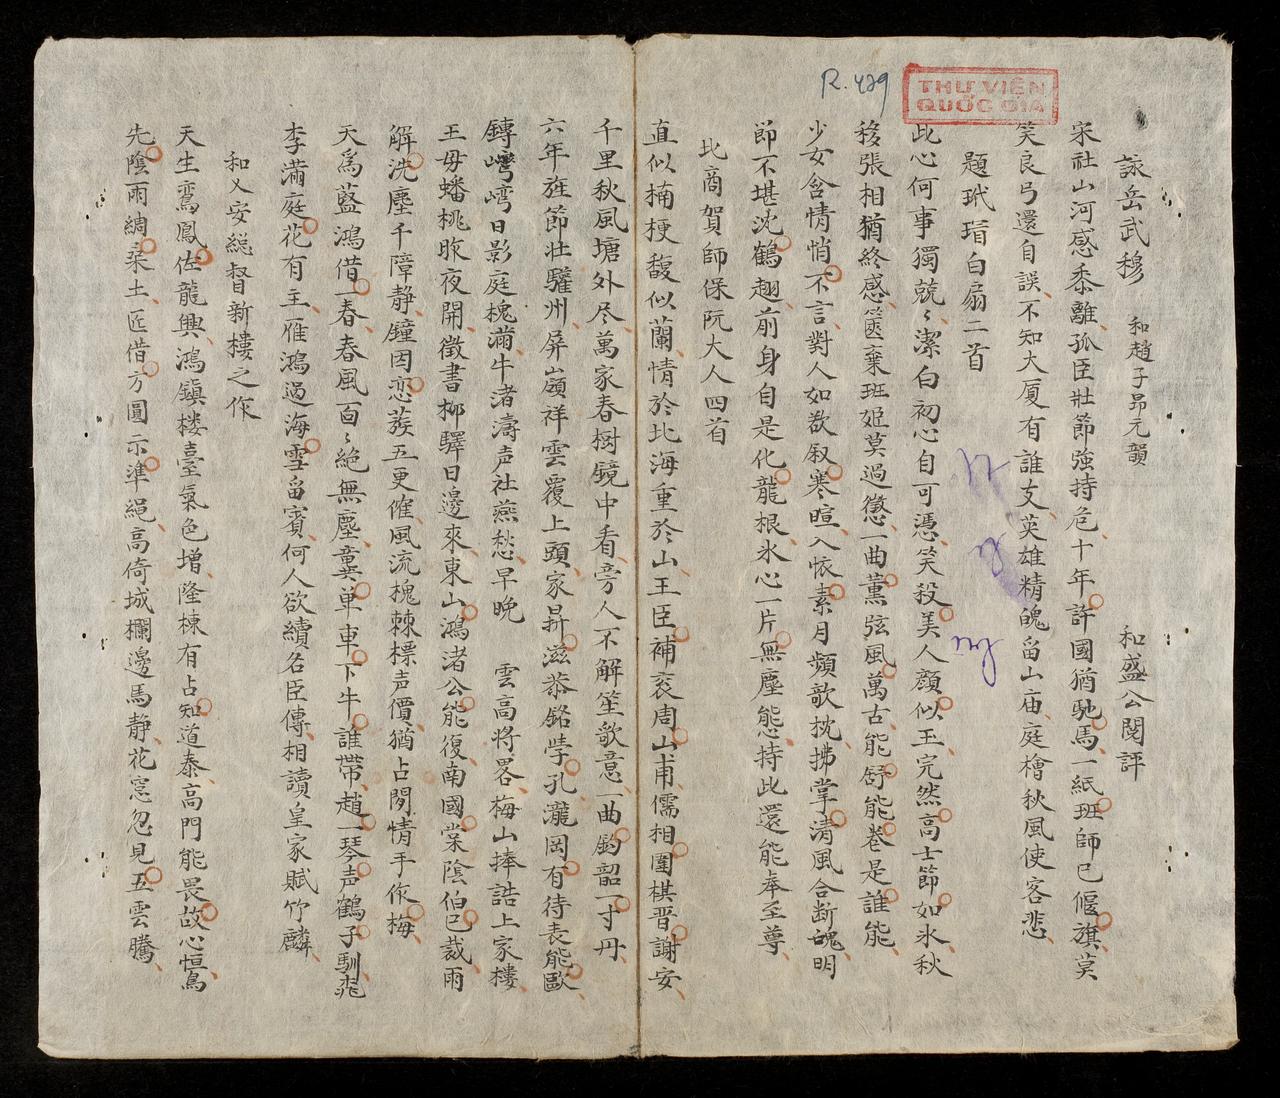 R.429
THƯ VIỆN
QUỐC GIA
詠岳武穆 和趙子昂元韻 和盛公閱評
宋社山河感黍離孤臣壯節強持危十年許國猶馳馬一紙班師已偃旗莫
笑良弓還自誤不知大厦有誰支英雄精魄留山庙庭檜秋風使客悲
題玳瑁白扇二首
此心何事獨兢〻潔白初心自可憑笑殺美人顔似玉完然高士節如氷秋
移張相猶終感篋棄班姬莫過懲一曲薰弦風萬古能舒能卷是誰能
少女含情悄不言對人如欲叙寒暄入懷素月頻歌枕拂掌清風合断魄明
節不堪沈鶴翅前身自是化龍根氷心一片無塵態持此還能奉至尊
比商賀師保阮大人四首
直似楠梗馥似蘭情於北海重於山王臣補衮周山甫儒相圍棋晋謝安
千里秋風塘外尽萬家春樹鏡中看旁人不解笙歌意一曲鈞韶一寸丹
六年旌節壮驩州屏嶺祥雲覆上頭家昇滋恭銘孛孔瀧岡有待表能歐
鑄嶀嶀日影庭槐滿牛渚濤声社燕愁早晚 雲高將畧梅山捧誥上家樓
王母蟠桃昨夜開徵書柳驛日邊來東山鴻渚公能復南國棠陰伯已裁雨
解洗塵千障静鐘因恋蔟五更催風流槐棘標声價猶占閒情手作梅
天爲藍鴻借一春春風一百〻絶無塵龔單車下牛誰帶趙一琴声鶴子馴飛
李滿庭花有主一雁鴻過海雪留賓何人欲續名臣傳相讀皇家賦竹麟
和乂安総督新樓之作
天生鸞鳳佐龍興鴻鎮楼臺氣色增隆棟有占知道泰高門能畏故心恒鳥
先陰雨綢桒土匠借方圓示準繩高倚城欄邊馬静花窓忽見五雲騰